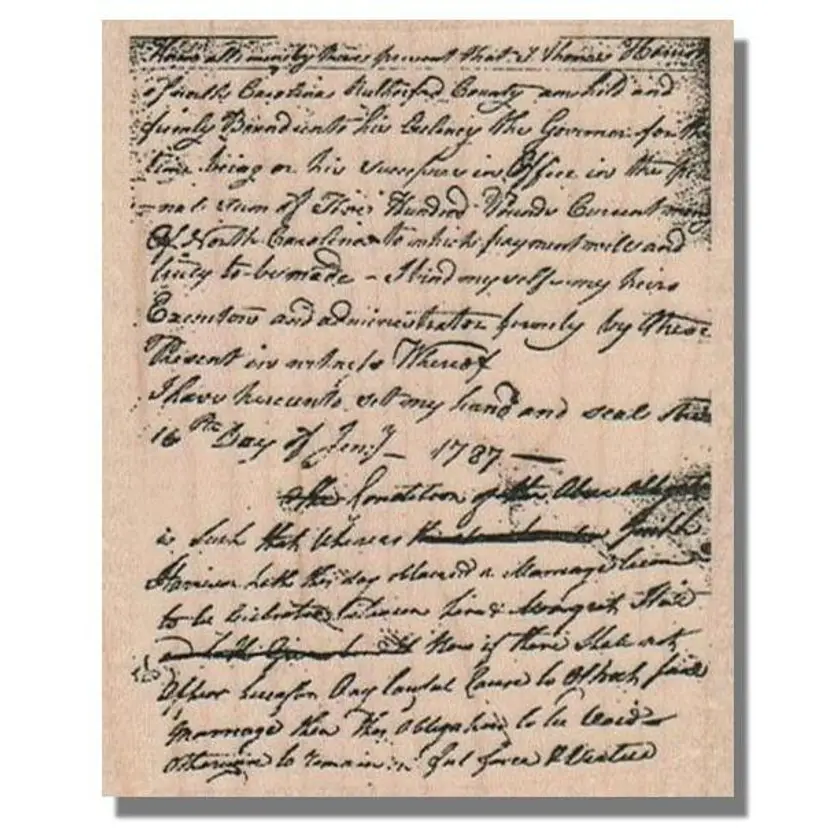 Know all men by these present that I Thomas
of North Carolina Rutherford County am held and
firmly Bound unto his Excelency the Governor for the
time being or his successors in Office in the pe
-nal sum of Hundred Pounds Current money
Of North Carolina to which payment well and
truly to be made - I bind myself my heirs
Executors and administrators firmly by these
Present in witness Whereof
I have hereunto set my hand and seal this
16th Day of Jany - 1787 —
the Condition of the Above Obligation
is Such that Whereas
Harrison hath this day obtained a Marriage licence
to be Celebrated between him & Margret
Now if there Shall not
Appear hereafter Any lawful Cause to Obstruct said
Marriage then this Obligation to be Void
Otherwise to remain in full force & Vertue